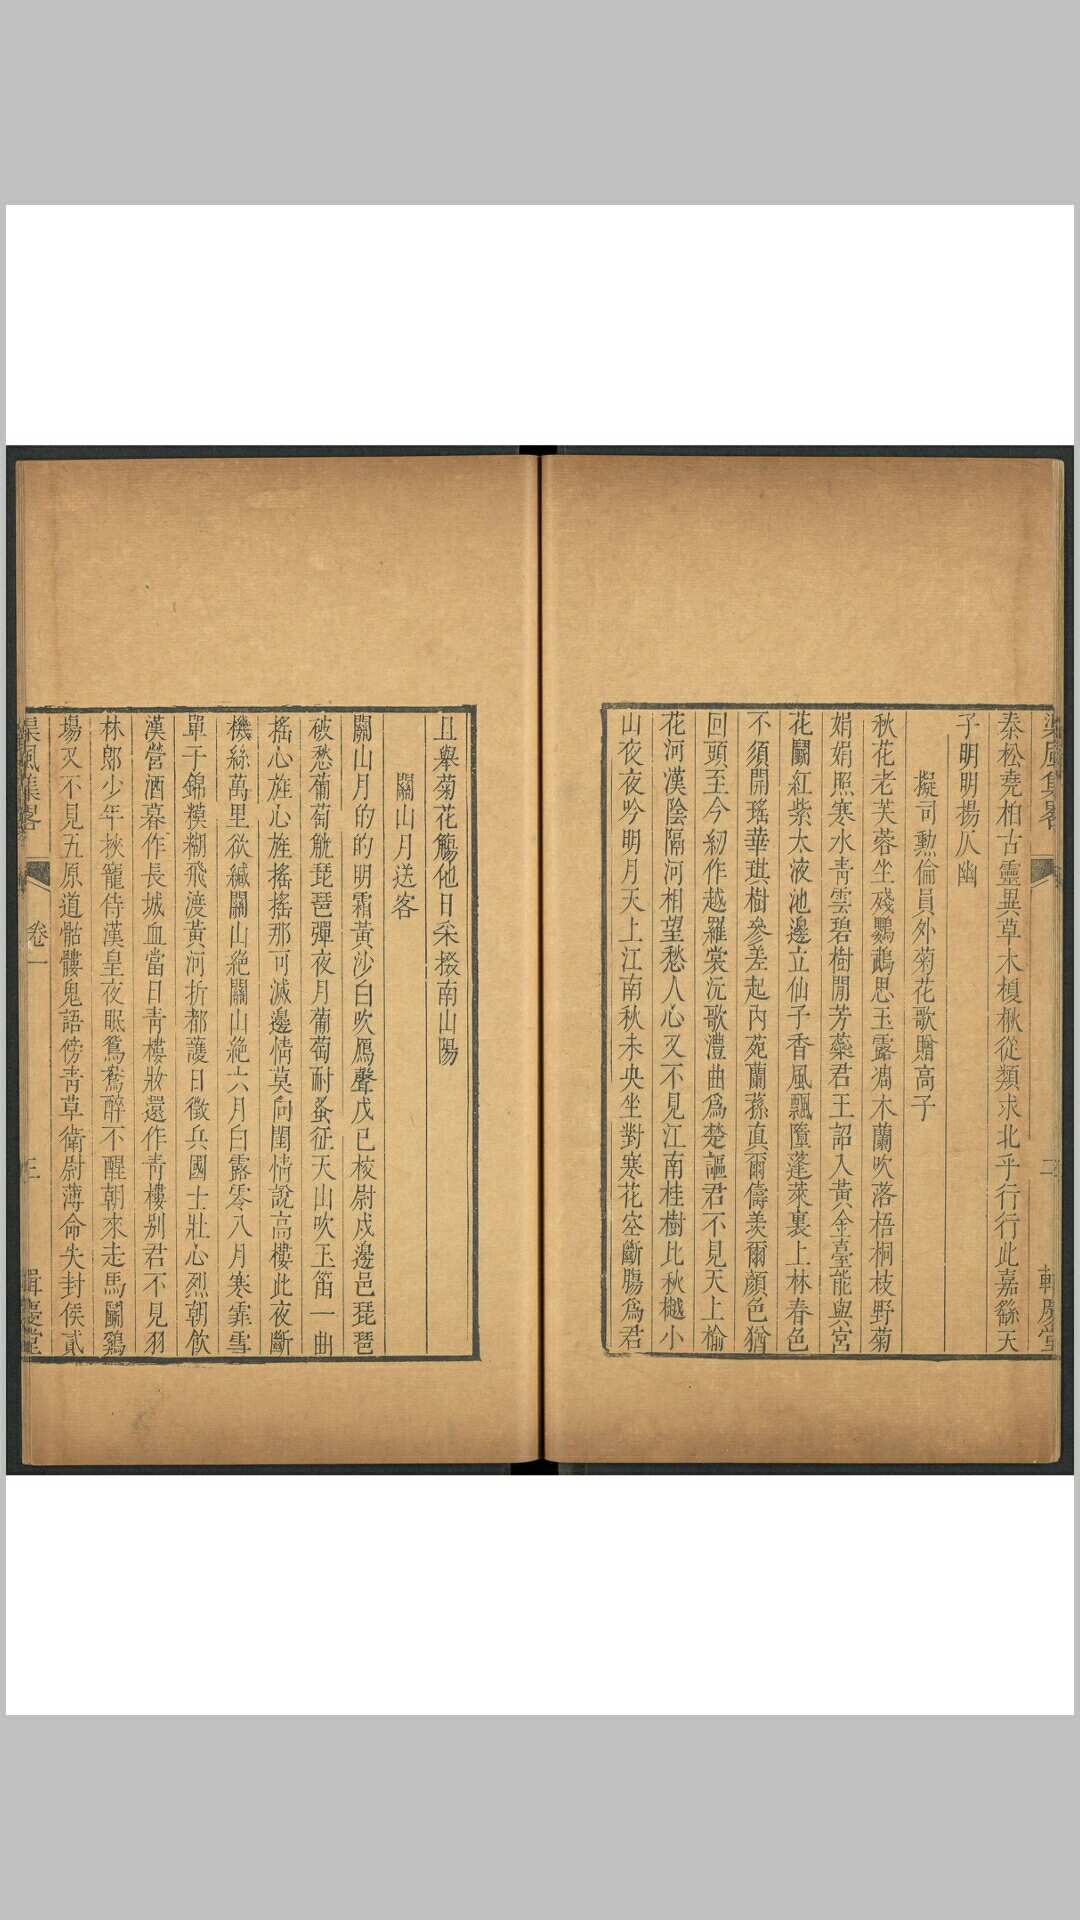 泰松堯柏古靈異草木榎楸從類求北乎行行此嘉繇天
子明明揚仄幽
擬司勲倫員外菊花歌贈高子
秋花老芙蓉坐殘鸚鵡思玉露凋木蘭吹落梧桐枝野菊
娟娟照寒水青雲碧樹閒芳蘂君王詔入黃金臺能與宮
花鬬紅紫太液池邊立仙子香風飄墮蓬萊裏上林春色
不須開瑤華琪樹參差起內苑蘭蓀真爾儔羨爾顏色猶
回頭至今紉作越羅裳沅歌澧曲爲楚謳君不見天上榆
花河漢陰隔河相望愁人心又不見江南桂樹比秋樾小
山夜夜吟明月天上江南秋未央坐對寒花空斷腸爲君
且舉菊花觴他日采掇南山陽
關山月送客
關山月的的明霜黃沙白吹鴈聲戊已校尉戍邊邑琵琶
破愁葡萄觥琵琶彈夜月葡萄酎蚤征天山吹玉笛一曲
搖心旌心旌搖搖那可滅邊情莫向閨情說高樓此夜斷
機絲萬里欲緘關山絶關山絶六月白露零八月寒霏雪
單于錦糢糊飛渡黃河折都護日徵兵國士壯心烈朝飲
漢營酒暮作長城血當日青樓妝還作青樓別君不見羽
林郎少年挾寵侍漢皇夜眠鴛鴦醉不醒朝來走馬鬬鷄
場又不見五原道骷髏鬼語傍青草衛尉薄命失封侯貳
卷一